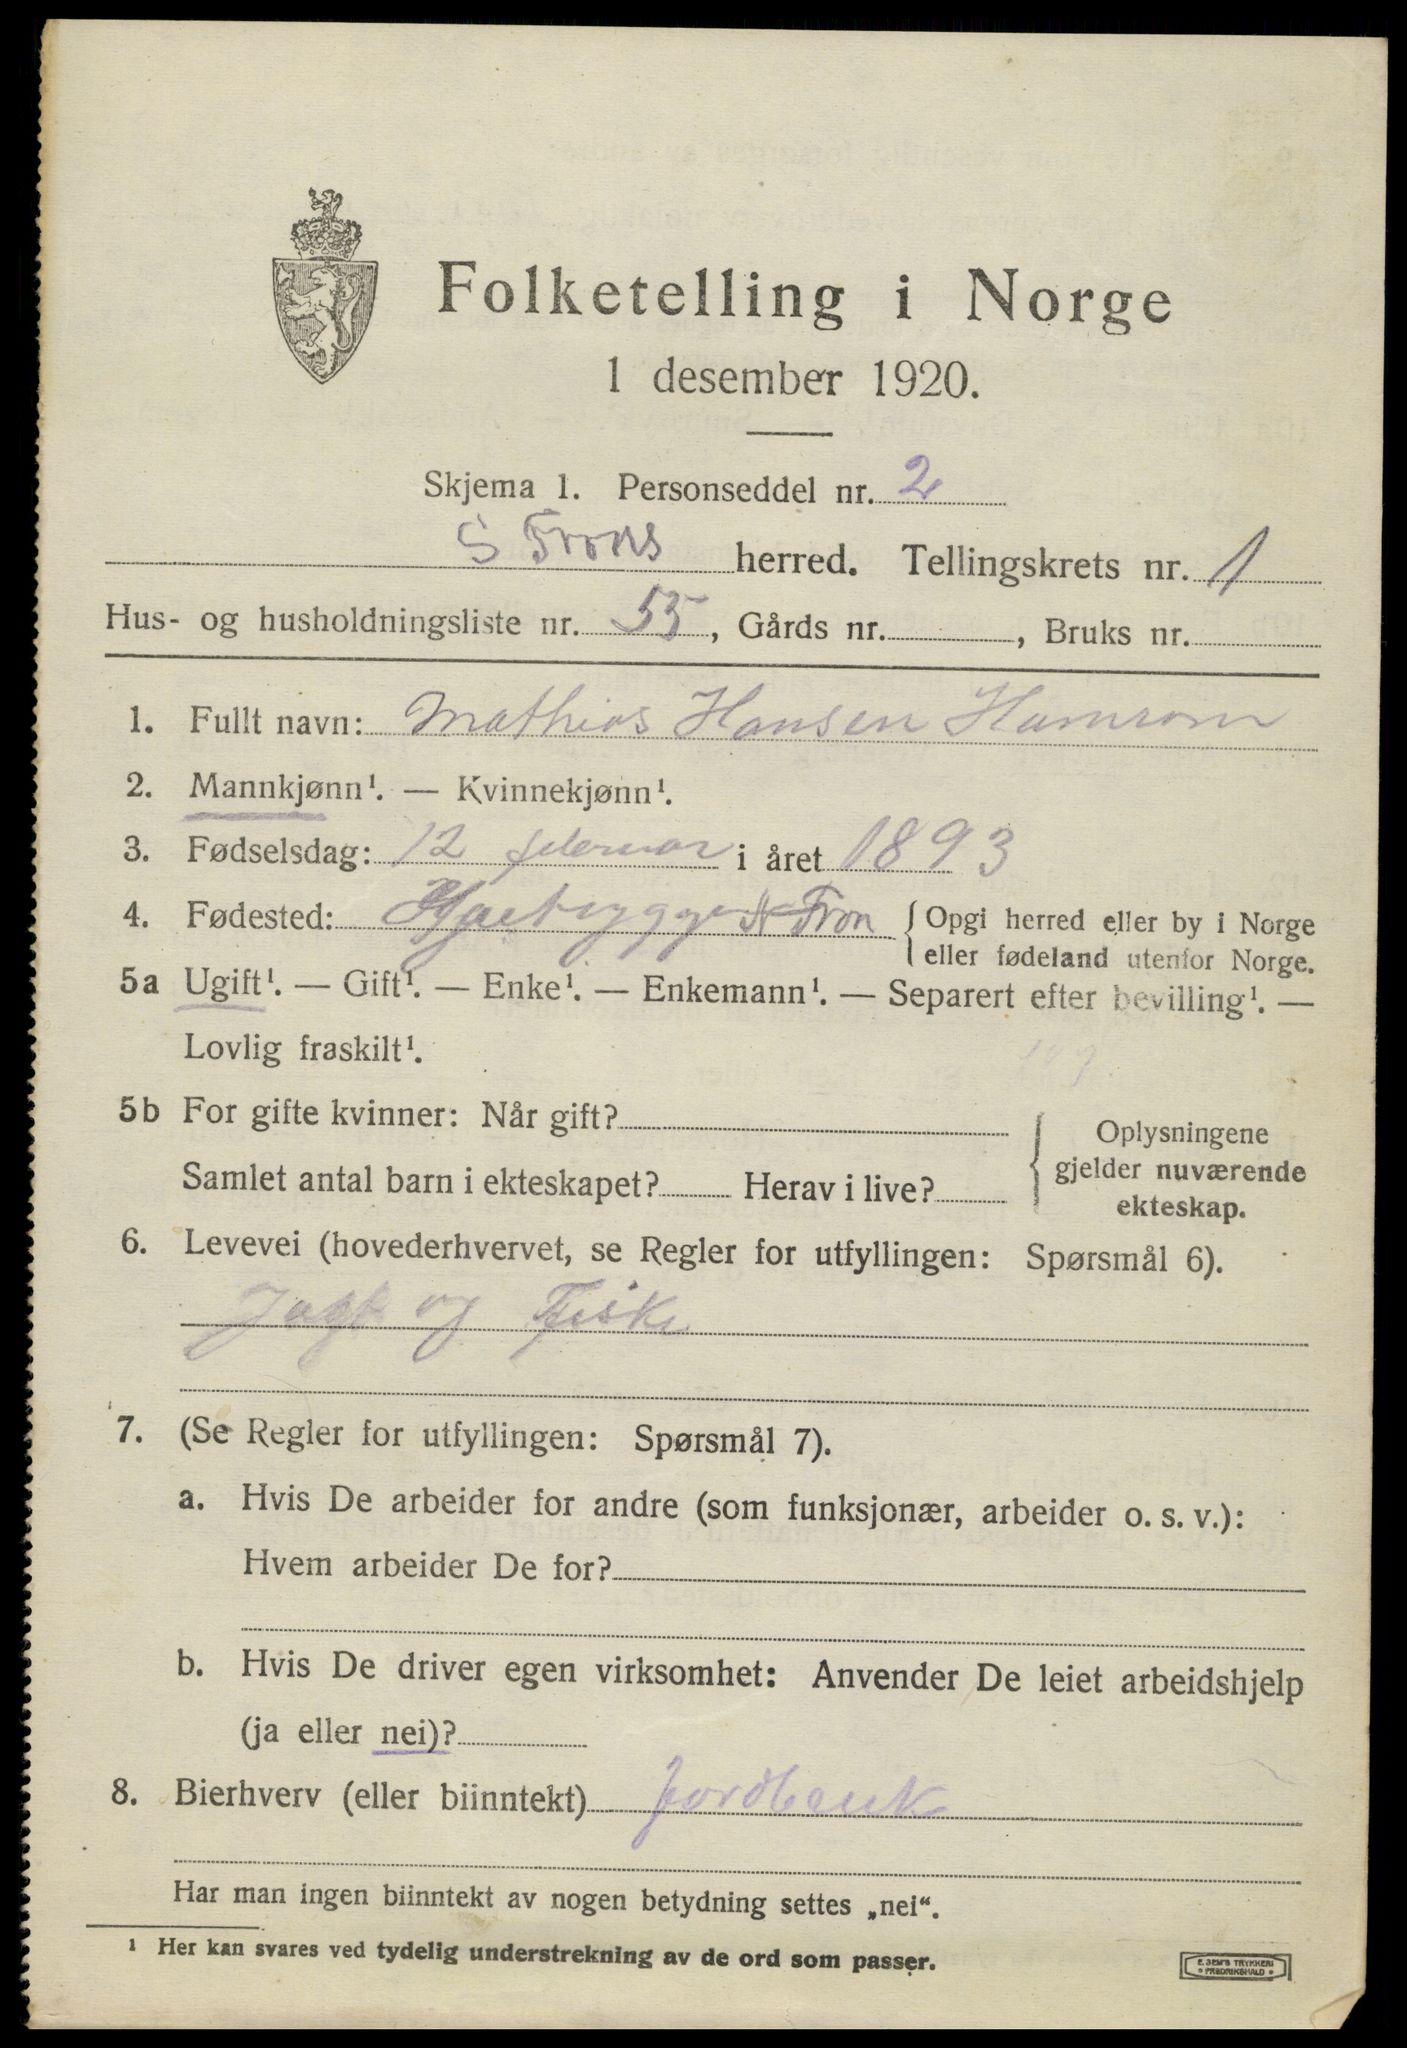 Folketelling i Norge
1 desember 1920.
Skjema 1. Personseddel nr. 2
S Frons herred. Tellingskrets nr. 1
Hus- og husholdningsliste nr. 55, Gårds nr. , Bruks nr.
1. Fullt navn: Mathias Hansen Hamrom
2. Mannkjønn¹. — Kvinnekjønn¹.
3. Fødselsdag: 12 februar i året 1893
4. Fødested: N Fron { Opgi herred eller by i Norge
eller fødeland utenfor Norge.
5a Ugift¹. — Gift¹. — Enke¹. — Enkemann¹. — Separert efter bevilling¹. —
Lovlig fraskilt¹.
5b For gifte kvinner: Når gift?
Samlet antal barn i ekteskapet? Herav i live?
{ Oplysningene
gjelder nuværende
ekteskap.
6. Levevei (hovederhvervet, se Regler for utfyllingen: Spørsmål 6).
Jagt og Fiske
7. (Se Regler for utfyllingen: Spørsmål 7).
a. Hvis De arbeider for andre (som funksjonær, arbeider o. s. v.):
Hvem arbeider De for?
b. Hvis De driver egen virksomhet: Anvender De leiet arbeidshjelp
(ja eller nei)?
8. Bierhverv (eller biinntekt) jordbruk
Har man ingen biinntekt av nogen betydning settes „nei“.
¹ Her kan svares ved tydelig understrekning av de ord som passer.
E. SEM'S TRYKKERI
• FREDRIKSHALD •